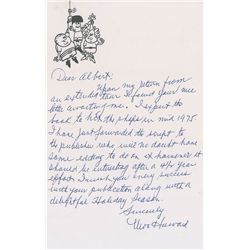 Dear Albert:
Upon my return from
an extended tour I found your nice
letter awaiting me. I expect the
back to hit the shops in mid 1975
I have just forwarded the script to
the publisher who will no doubt have
some editing to do on it however it
should be interesting after a 4½ year
effort. I wish you every success
with your publication along with a
delightful Holiday Season.
Sincerely
Moe Howard